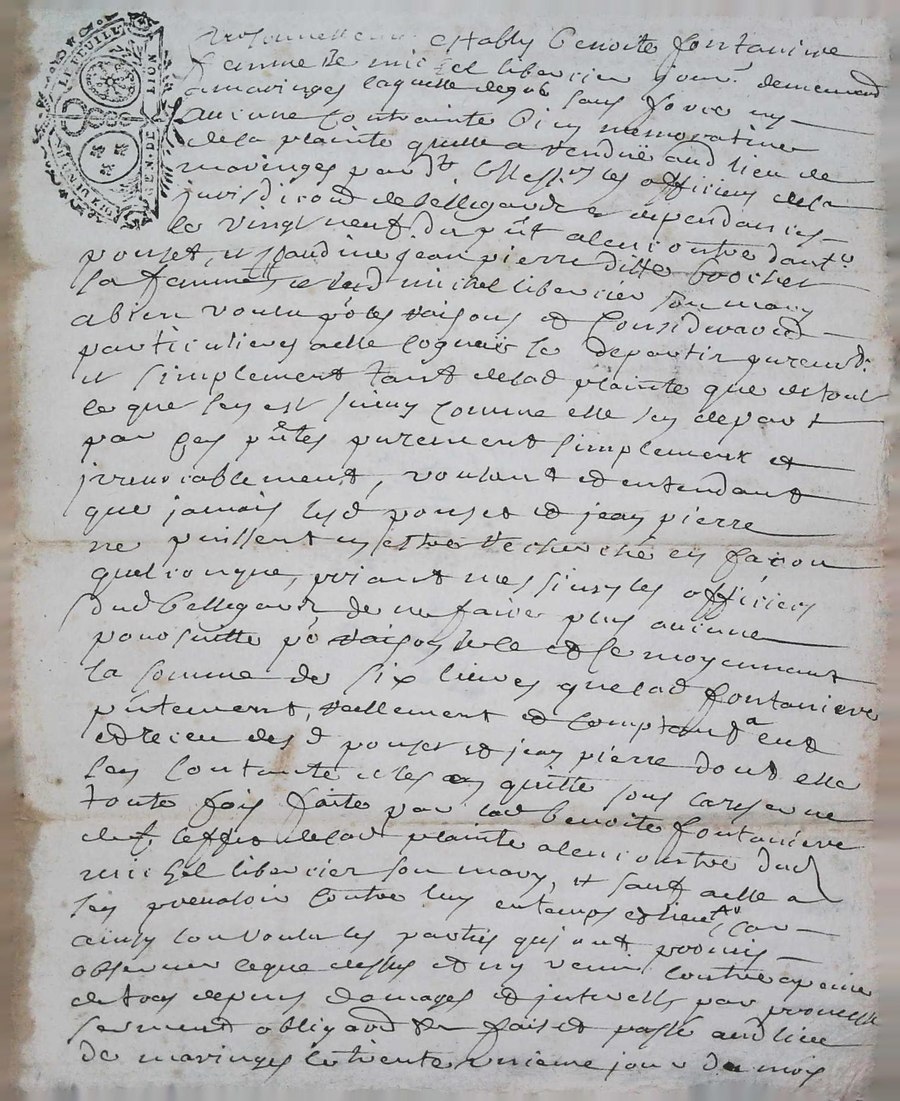 GEN. DE LION
LE FEUILLE
DENIERS
personnellement estably benoite fontaniere
femme de michel libercier jour.r demeurant
a maringes laquelle degre sans force ny
aucune contrainte bien memorative
de la plainte quelle a rendue aud lieu de
maringes pardt les officiers de la
jurisdicond de bellegarde et dependances
le vingt neuf du pnt alencontre dant.e
pouset, et claudine jean pierre ditte
la femme et led michel libercier son mary
a bien voulu po.r les raisons et considera.ond
particulieres a elle cogneues se departir purem.t
et simplement tant de lad plainte que de tout
ce que sen est suivy comme elle sen depart
par ces pntes purement simplement et
jrrevocablement, voulant et entendant
que jamais lesd pouset et jean pierre
ne puissent en estre recherché en facon
quelconque, priant messieurs les officiers
dud bellegarde de ne faire plus aucune
poursuitte po.r raison de ce et ce moyennant
la somme de six livres que lad fontaniere
pntement, reellement et comptant a eud
et receu desd pouset et jean pierre dont elle
sen contante et les en quitte sous la reserve
toute fois faite par lad benoite fontaniere
de lad plainte alencontre dud
michel libercier son mary, et sauf a elle a
sen prevaloir contre luy en temps et lieu car
ainsy lon voulu les parties qui ont promis
observer ce que dessus et ny venir contre a peine
de tous depens domages et interests par promesse
serment obliga.ond fait et passé aud lieu
de maringes le trente unieme jour du mois